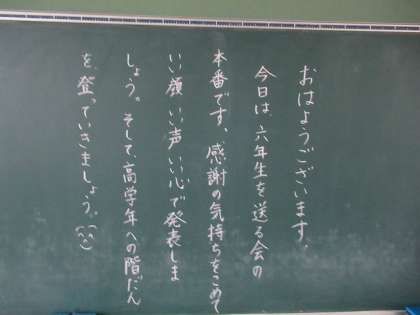 おはようございます。
今日は、六年生を送る会の
本番です。感謝の気持ちをこめて
いい顔いい声いい心で発表しま
しょう。そして、高学年への階だん
を、登っていきましょう。(^^)